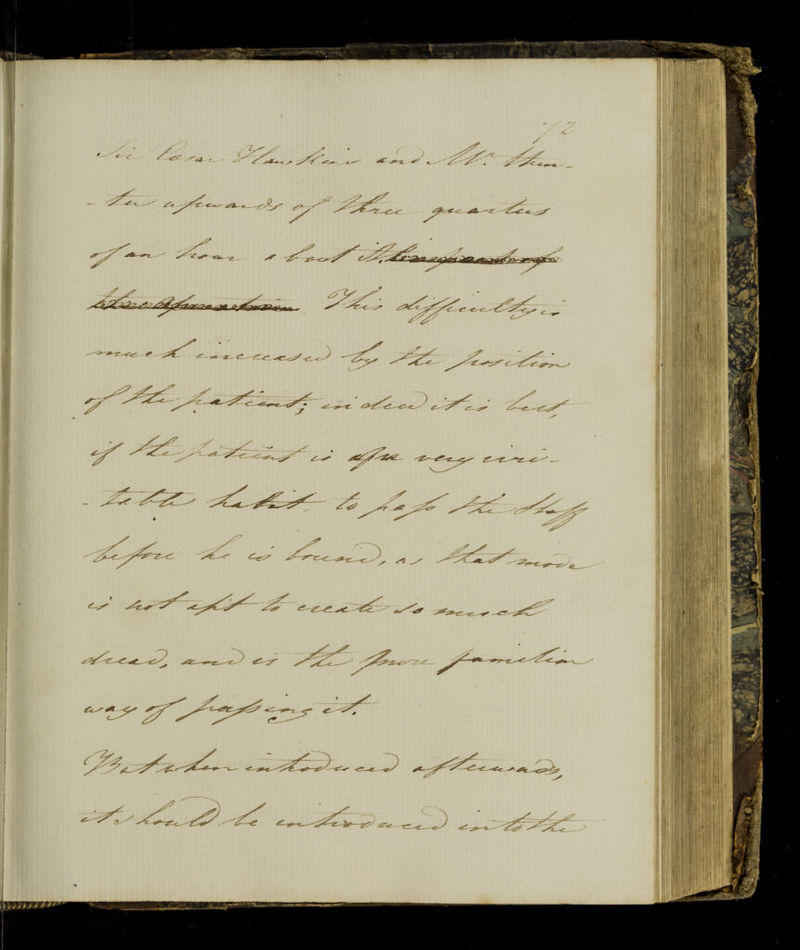 72
Sir Cæsar Hawkins and Mr. Hun-
-ter upwards of three quarters
of an hour about it.
This difficulty is
much increased by the position
of the patient; indeed it is best,
if the patient is of a very irri-
-table habit to pass the Staff
before he is bound, as that mode
is not apt to create so much
dread, and is the more familiar
way of passing it.
But when introduced afterwards,
it should be introduced into the